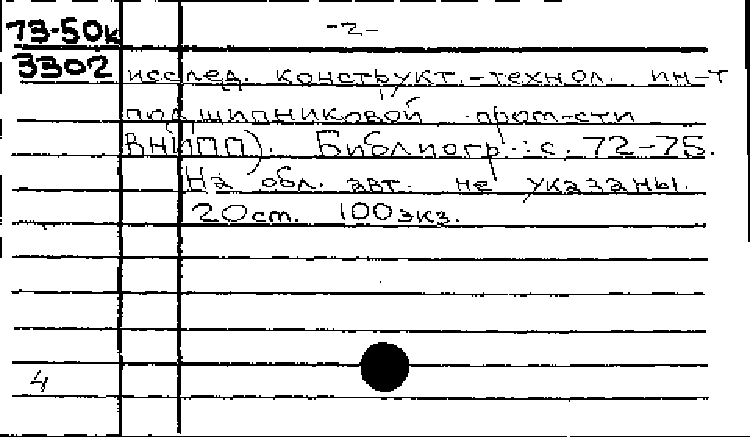 73-50к -2-
3302 исслед. конструкт.-технол. ин-т
подшипниковой пром-сти
ВНИПП). Библиогр.: с. 72-75.
На обл. авт. не указаны.
20 cm. 100 экз.
4